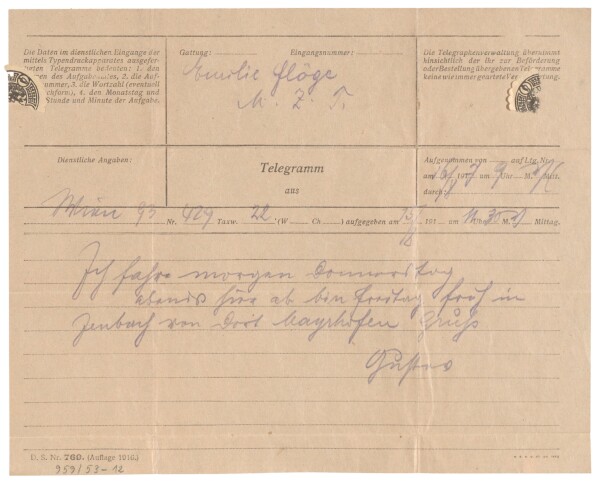 Die Daten im dienstlichen Eingange der
mittels Typendruckapparates ausgefer-
tigten Telegramme bedeuten: 1. den
Namen des Aufgabeamtes, 2. die Auf-
nummer, 3. die Wortzahl (eventuell
4. den Monatstag und
Stunde und Minute der Aufgabe.
Gattung: Eingangsnummer:
Emilie Flöge
M. Z. T.
Die Telegraphenverwaltung übernimmt
hinsichtlich der ihr zur Beförderung
oder Bestellung übergebenen Telegramme
keine wie immer geartete Verantwortung.
Dienstliche Angaben:
Telegramm
aus
Aufgenommen von auf Ltg. Nr.
am 191 7 9 Uhr M. Mitt.
durch:
Wien 93 Nr. 429 Taxw. 22 (W Ch ) aufgegeben am 191 um 11 Uhr M. Mittag.
Ich fahre morgen Donnerstag
abends hier ab bin Freitag früh in
Jenbach von dort Mayrhofen Gruss
Gustav
D. S. Nr. 769. (Auflage 1916.)
959/53-12